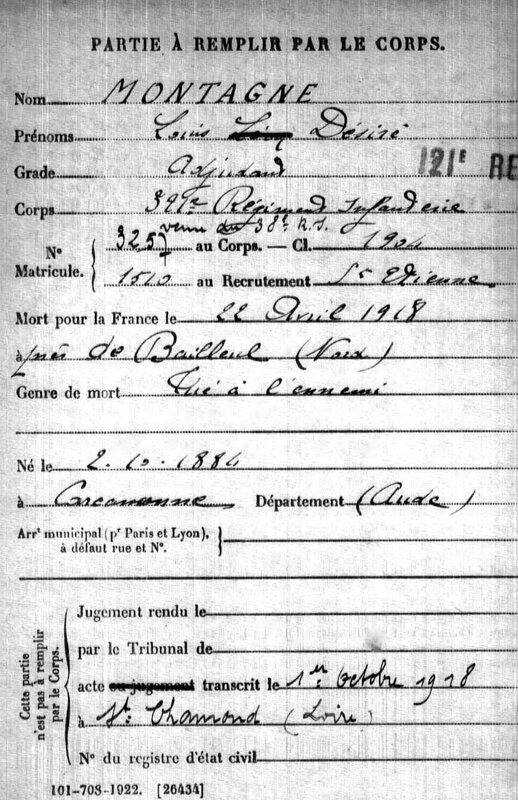 PARTIE À REMPLIR PAR LE CORPS.
Nom MONTAGNE
Prénoms Louis Désiré
Grade Adjudant
121E RE
Corps Régiment Infanterie
venu du 38e R.I.
N° Matricule. 3257 au Corps. — Cl. 1904
1510 au Recrutement St Etienne
Mort pour la France le 22 Avril 1918
à près de Bailleul (Nord)
Genre de mort Tué à l'ennemi
Né le 2. 10. 1884
à Carcassonne Département (Aude)
Arrt municipal (pr Paris et Lyon),
à défaut rue et N°.
Cette partie n'est pas à remplir par le Corps.
Jugement rendu le
par le Tribunal de
acte ou jugement transcrit le 1er Octobre 1918
à St Chamond (Loire)
N° du registre d'état civil
101-708-1922. [26434]